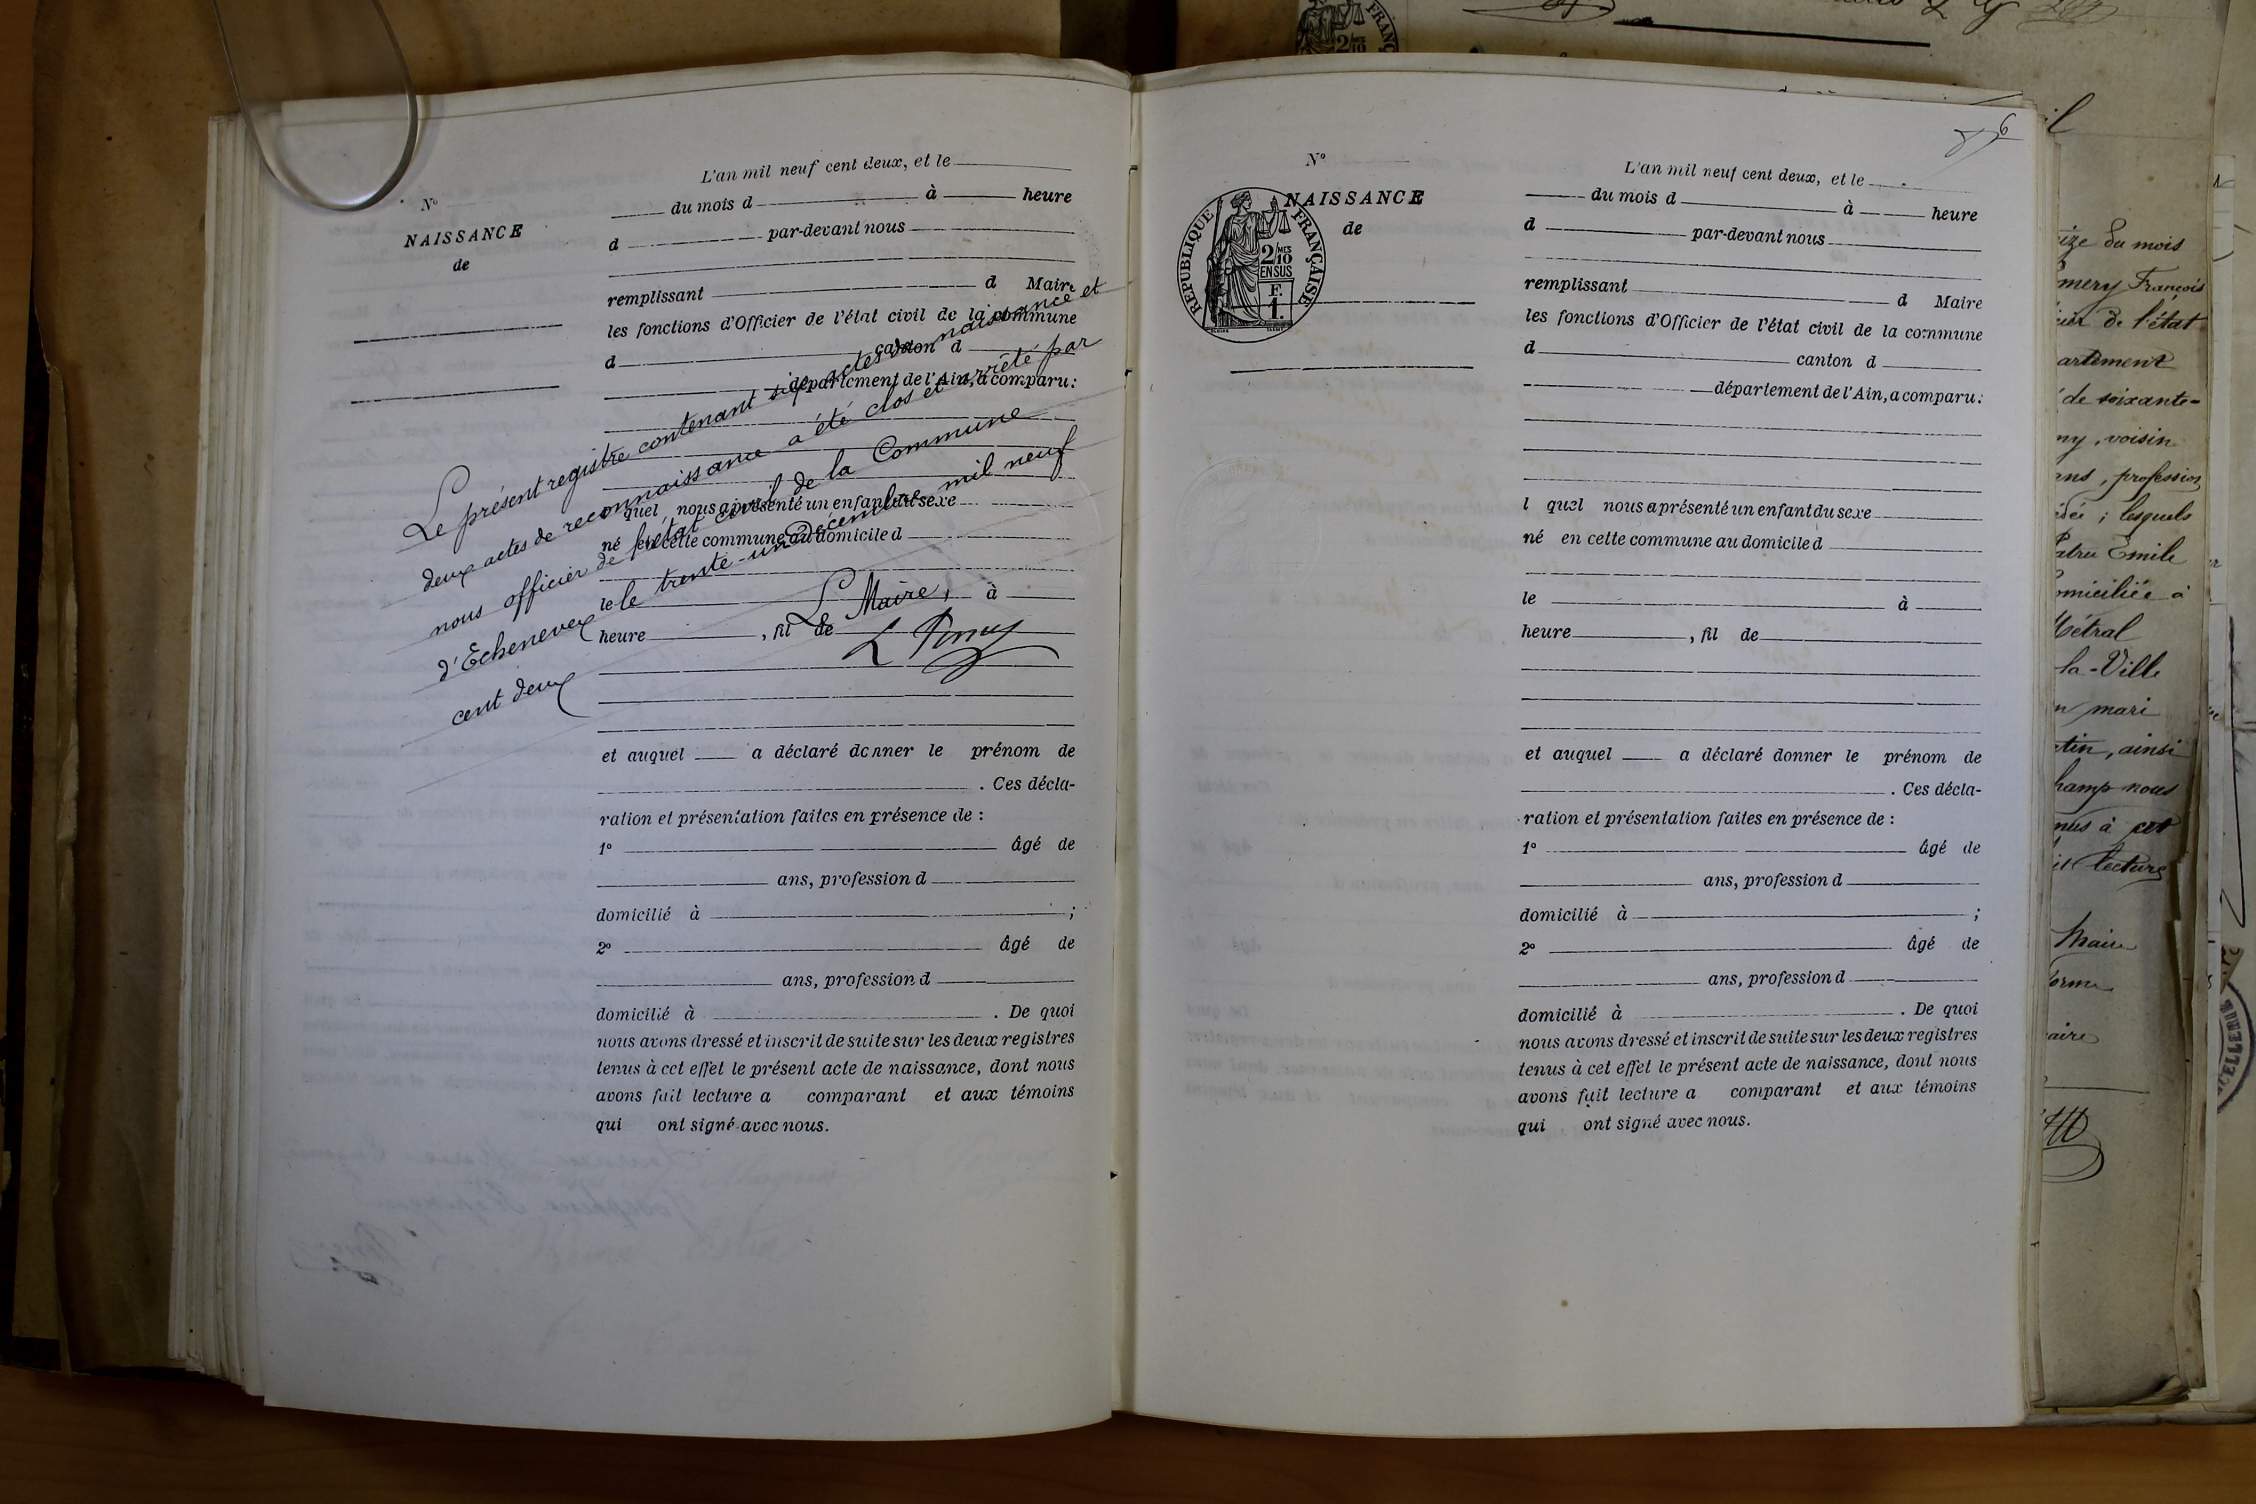 L'an mil neuf cent deux, et le
Nº
du mois d à heure
NAISSANCE
d par-devant nous
de
remplissant d Maire
les fonctions d'Officier de l'état civil de la commune
d canton d
département de l'Ain, a comparu:
quel nous a présenté un enfant du sexe
né en cette commune au domicile d
le à
heure , fil de
et auquel a déclaré donner le prénom de
. Ces décla-
ration et présentation faites en présence de :
1º âgé de
ans, profession d
domicilié à ;
2º âgé de
ans, profession d
domicilié à . De quoi
nous avons dressé et inscrit de suite sur les deux registres
tenus à cet effet le présent acte de naissance, dont nous
avons fait lecture a comparant et aux témoins
qui ont signé avec nous.
Le présent registre contenant six actes de naissance et
deux actes de reconnaissance a été clos et arrêté par
nous officier de l'état civil de la Commune
d'Echenevex le trente-un Décembre mil neuf
cent deux
Le Maire,
6
Nº
L'an mil neuf cent deux, et le
NAISSANCE
du mois d à heure
de
d par-devant nous
REPUBLIQUE FRANÇAISE
2/10 MES
EN SUS
F.
1.
remplissant d Maire
les fonctions d'Officier de l'état civil de la commune
d canton d
département de l'Ain, a comparu:
l quel nous a présenté un enfant du sexe
né en cette commune au domicile d
le à
heure , fil de
et auquel a déclaré donner le prénom de
. Ces décla-
ration et présentation faites en présence de :
1º âgé de
ans, profession d
domicilié à ;
2º âgé de
ans, profession d
domicilié à . De quoi
nous avons dressé et inscrit de suite sur les deux registres
tenus à cet effet le présent acte de naissance, dont nous
avons fait lecture a comparant et aux témoins
qui ont signé avec nous.
du mois
François
de l'état
de soixante-
voisin
profession
; lesquels
Emile
à
Métral
la-Ville
mari
, ainsi
nous
à cet
lecture
Maire